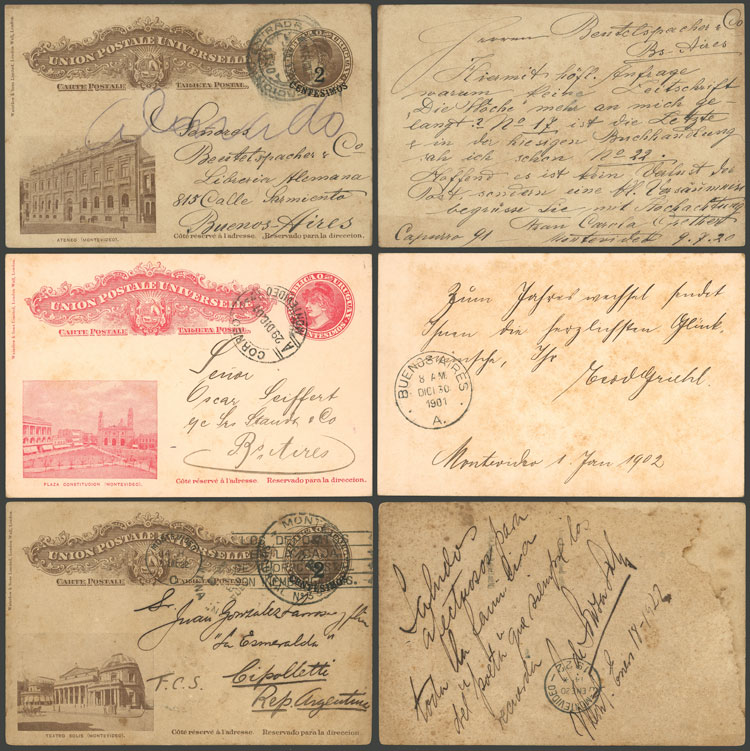 Waterlow & Sons Limited, London Wall, London.
UNION POSTALE UNIVERSELLE
CARTE POSTALE TARJETA POSTAL
2
CENTÉSIMOS
Señores
Beutelspacher & Co
Libreria Alemana
815 Calle Sarmiento
Buenos-Aires
ATENEO (MONTEVIDEO).
Côté réservé à l'adresse. Reservado para la direccion.
Herren Beutelspacher & Co
Bs. Aires
Hiermit höfl. Anfrage
warum keine Zeitschrift
"Die Woche" mehr an mich ge-
langt? No 17 ist die Letzte
& in der hiesigen Buchhandlung
sah ich schon No 22.
Hoffend es ist kein Verlust der
Post, sondern eine kl.
begrüsse Sie mit Hochachtung
Juan Garcia
Capurro 91 Montevideo 9.7.20
Waterlow & Sons Limited, London Wall, London.
UNION POSTALE UNIVERSELLE
CARTE POSTALE TARJETA POSTAL
REPUBLICA O. DEL URUGUAY
CORREOS
29 DIC
MONTEVIDEO
A
Señor
Oscar Seiffert
Staudt & Co
Bs. Aires
PLAZA CONSTITUCION (MONTEVIDEO).
Côté réservé à l'adresse. Reservado para la direccion.
Zum Jahreswechsel sendet
Ihnen die herzlichsten Glück-
wünsche, Ihr
BUENOS AIRES
8 AM
DIC. 30
1901
A.
Montevideo 1. Jan 1902
Waterlow & Sons Limited, London Wall, London.
UNION POSTALE UNIVERSELLE
CARTE POSTALE TARJETA POSTAL
MONTEVIDEO
2
CENTÉSIMOS
Sr Juan Gonzalez
"La Esmeralda"
Cipolletti
F.C.S.
Rep. Argentina
TEATRO SOLIS (MONTEVIDEO).
Côté réservé à l'adresse. Reservado para la direccion.
Saludos
afectuosos para
toda la familia
del poeta que siempre los
recuerda
MONTEVIDEO